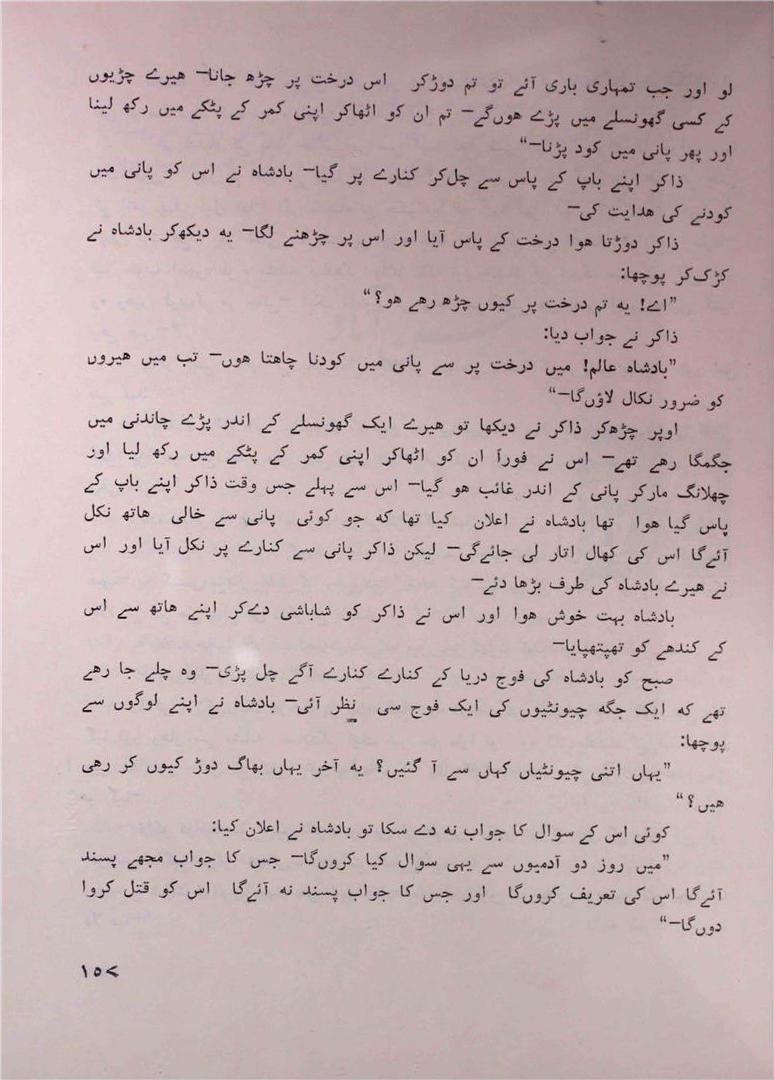 لو اور جب تمہاری باری آئے تو تم دوڑکر اس درخت پر چڑھ جانا— ہیرے چڑیوں
کے کسی گھونسلے میں پڑے ہوں‌گے— تم ان کو اٹھاکر اپنی کمر کے پٹکے میں رکھ لینا
اور پھر پانی میں کود پڑنا—“
ذاکر اپنے باپ کے پاس سے چل‌کر کنارے پر گیا— بادشاہ نے اس کو پانی میں
کودنے کی ہدایت کی—
ذاکر دوڑتا ہوا درخت کے پاس آیا اور اس پر چڑھنے لگا— یہ دیکھ‌کر بادشاہ نے
کڑک‌کر پوچھا:
”اے! یہ تم درخت پر کیوں چڑھ رہے ہو؟“
ذاکر نے جواب دیا:
”بادشاہ عالم! میں درخت پر سے پانی میں کودنا چاہتا ہوں— تب میں ہیروں
کو ضرور نکال لاؤں‌گا—“
اوپر چڑھ‌کر ذاکر نے دیکھا تو ہیرے ایک گھونسلے کے اندر پڑے چاندنی میں
جگمگا رہے تھے— اس نے فوراً ان کو اٹھاکر اپنی کمر کے پٹکے میں رکھ لیا اور
چھلانگ مارکر پانی کے اندر غائب ہو گیا— اس سے پہلے جس وقت ذاکر اپنے باپ کے
پاس گیا ہوا تھا بادشاہ نے اعلان کیا تھا کہ جو کوئی پانی سے خالی ہاتھ نکل
آئے‌گا اس کی کھال اتار لی جائے‌گی— لیکن ذاکر پانی سے کنارے پر نکل آیا اور اس
نے ہیرے بادشاہ کی طرف بڑھا دئے—
بادشاہ بہت خوش ہوا اور اس نے ذاکر کو شاباشی دے‌کر اپنے ہاتھ سے اس
کے کندھے کو تھپتھپایا—
صبح کو بادشاہ کی فوج دریا کے کنارے کنارے آگے چل پڑی— وہ چلے جا رہے
تھے کہ ایک جگہ چیونٹیوں کی ایک فوج سی نظر آئی— بادشاہ نے اپنے لوگوں سے
پوچھا:
”یہاں اتنی چیونٹیاں کہاں سے آ گئیں؟ یہ آخر یہاں بھاگ دوڑ کیوں کر رہی
ہیں؟“
کوئی اس کے سوال کا جواب نہ دے سکا تو بادشاہ نے اعلان کیا:
”میں روز دو آدمیوں سے یہی سوال کیا کروں‌گا— جس کا جواب مجھے پسند
آئے‌گا اس کی تعریف کروں‌گا اور جس کا جواب پسند نہ آئے‌گا اس کو قتل کروا
دوں‌گا—“
۱۵۷